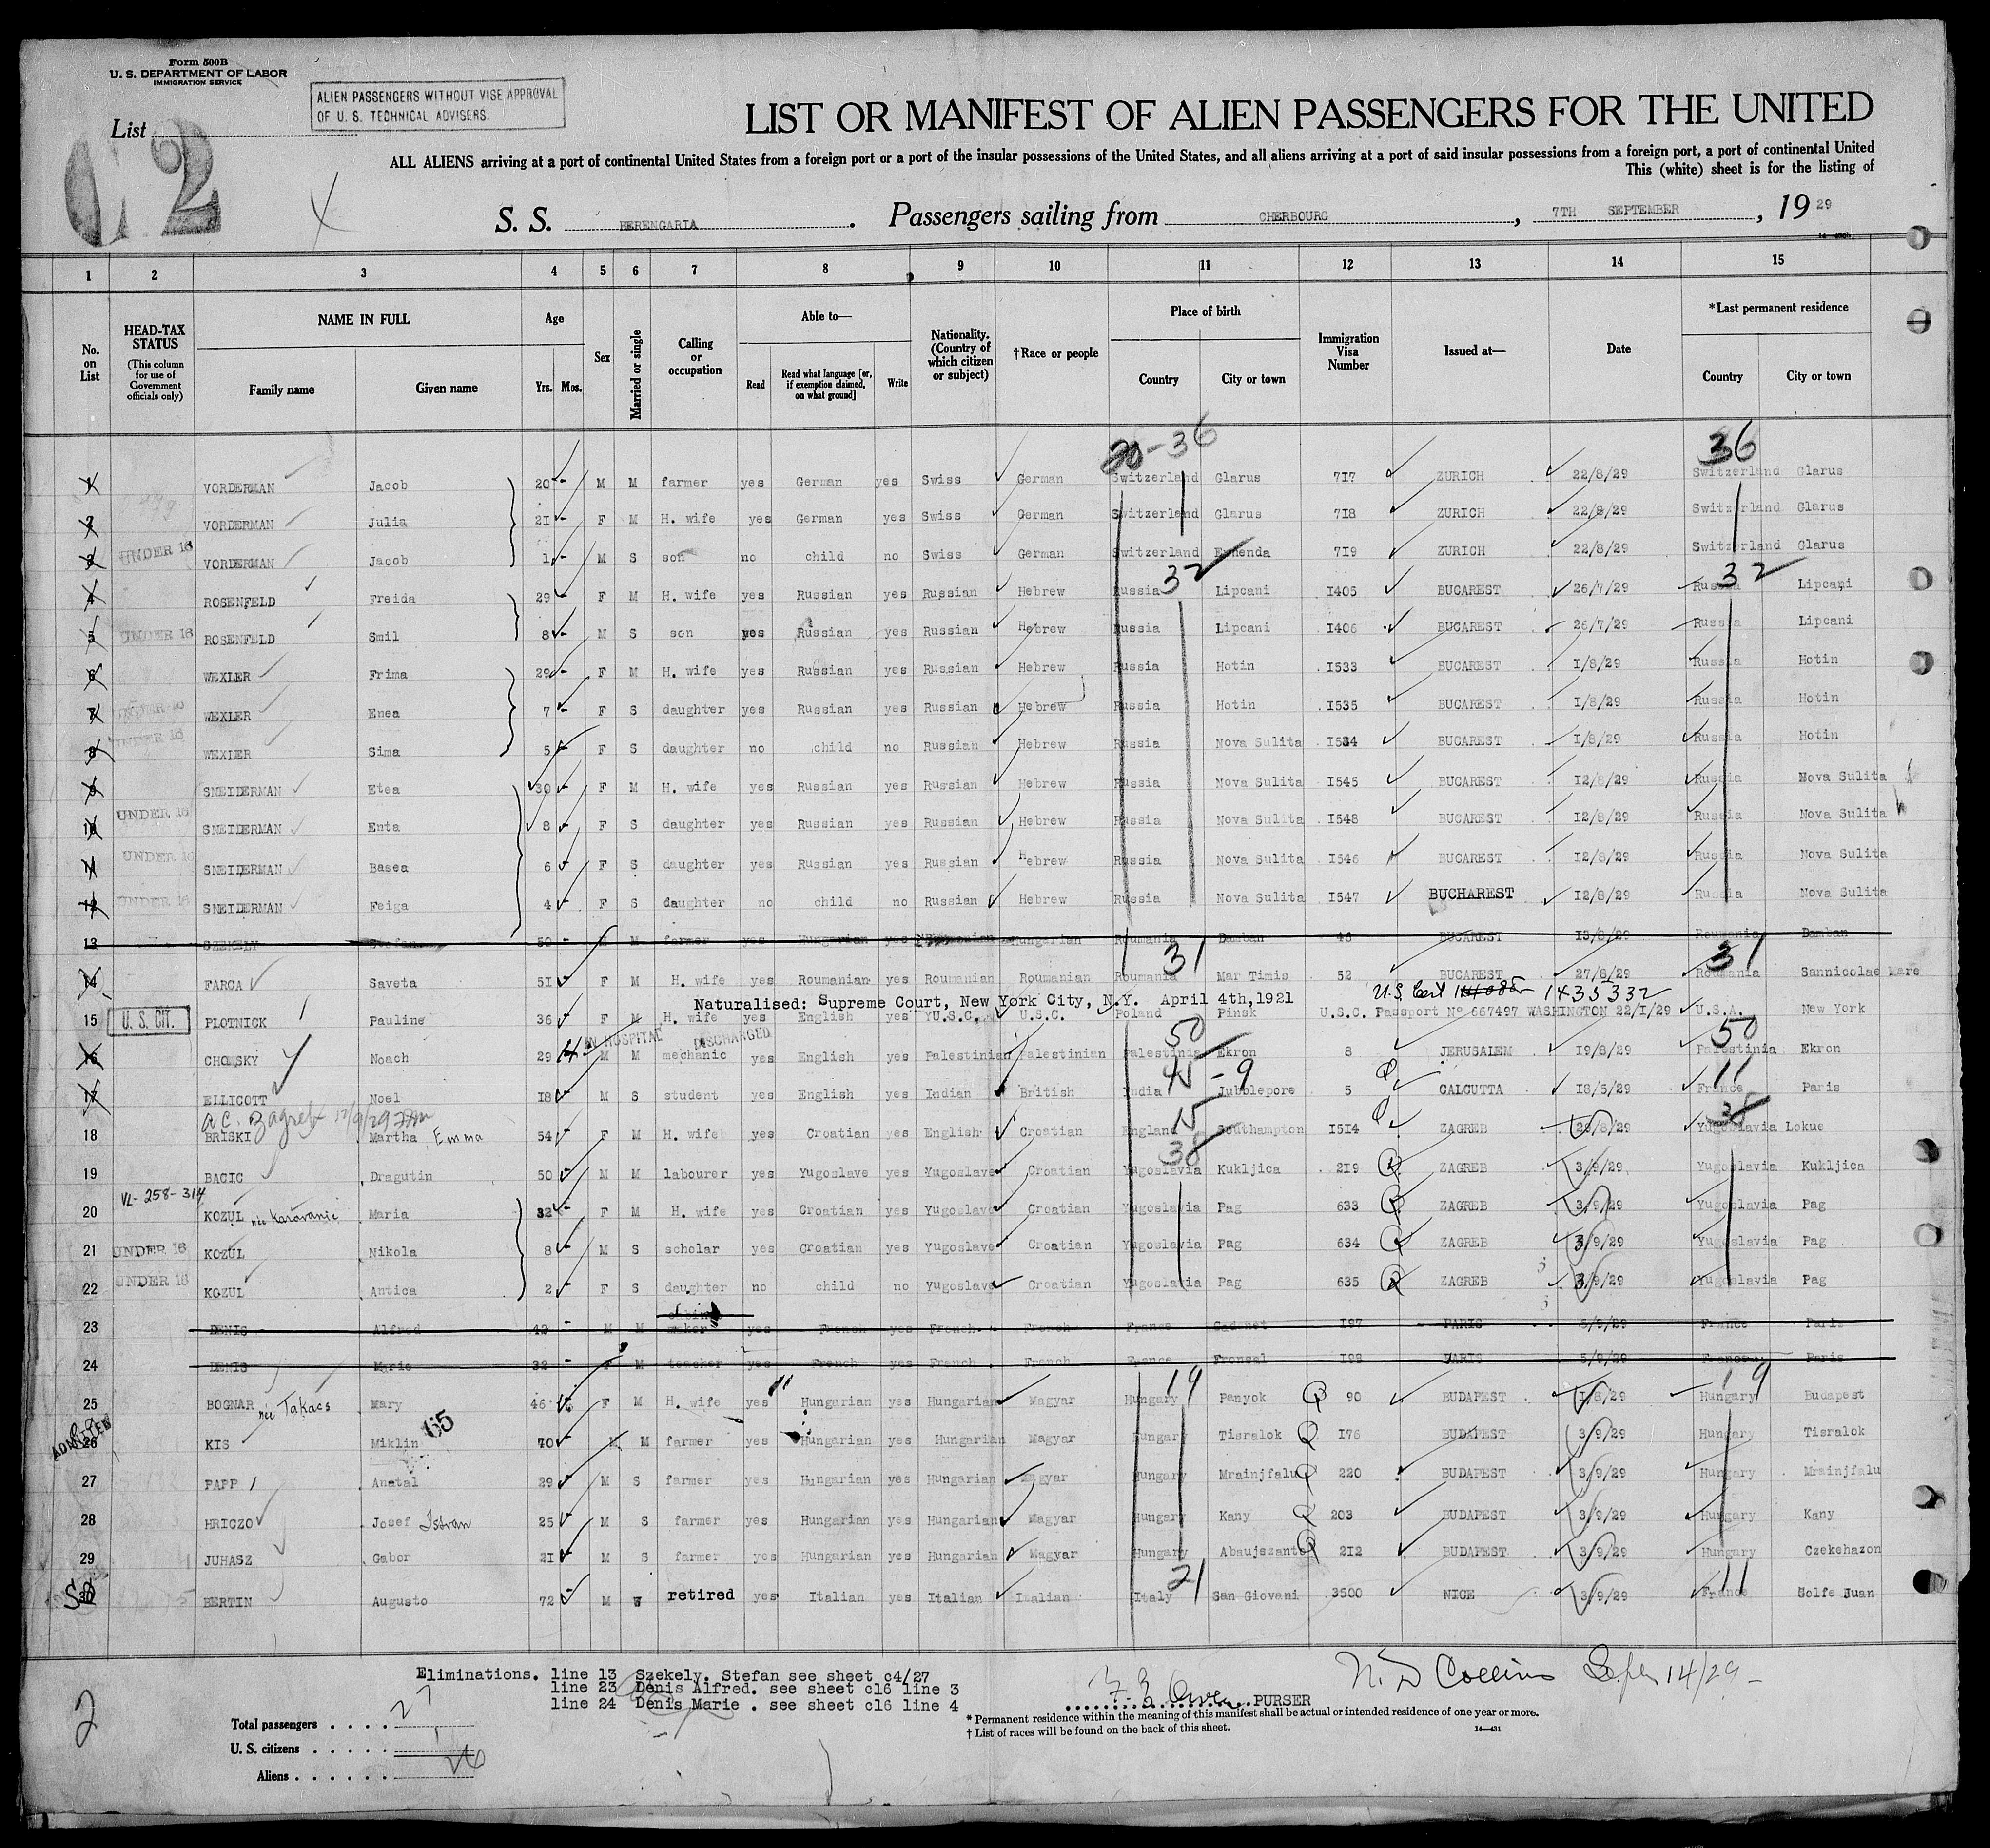 Form 500B
U. S. DEPARTMENT OF LABOR
IMMIGRATION SERVICE
ALIEN PASSENGERS WITHOUT VISE APPROVAL
OF U. S. TECHNICAL ADVISERS.
List
2
LIST OR MANIFEST OF ALIEN PASSENGERS FOR THE UNITED
ALL ALIENS arriving at a port of continental United States from a foreign port or a port of the insular possessions of the United States, and all aliens arriving at a port of said insular possessions from a foreign port, a port of continental United
This (white) sheet is for the listing of
S. S. BERENGARIA. Passengers sailing from CHERBOURG, 7TH SEPTEMBER, 1929
1 2 3 4 5 6 7 8 9 10 11 12 13 14 15
No. on List HEAD-TAX STATUS (This column for use of Government officials only) NAME IN FULL Family name Given name Age Yrs. Mos. Sex Married or single Calling or occupation Able to— Read Read what language [or, if exemption claimed, on what ground] Write Nationality. (Country of which citizen or subject) †Race or people Place of birth Country City or town Immigration Visa Number Issued at— Date *Last permanent residence Country City or town
36 36
1 VORDERMAN Jacob 20 - M M farmer yes German yes Swiss German Switzerland Glarus 717 ZURICH 22/8/29 Switzerland Glarus
2 VORDERMAN Julia 21 - F M H. wife yes German yes Swiss German Switzerland Glarus 718 ZURICH 22/8/29 Switzerland Glarus
3 UNDER 16 VORDERMAN Jacob 1 - M S son no child no Swiss German Switzerland 719 ZURICH 22/8/29 Switzerland Glarus
32 32
4 ROSENFELD Freida 29 - F M H. wife yes Russian yes Russian Hebrew Russia Lipcani 1405 BUCAREST 26/7/29 Russia Lipcani
5 UNDER 16 ROSENFELD Smil 8 - M S son yes Russian yes Russian Hebrew Russia Lipcani 1406 BUCAREST 26/7/29 Russia Lipcani
6 WEXLER Frima 29 - F M H. wife yes Russian yes Russian Hebrew Russia Hotin 1533 BUCAREST 1/8/29 Russia Hotin
7 UNDER 16 WEXLER Enea 7 - F S daughter yes Russian yes Russian Hebrew Russia Hotin 1535 BUCAREST 1/8/29 Russia Hotin
8 UNDER 16 WEXLER Sima 5 - F S daughter no child no Russian Hebrew Russia Nova Sulita 1534 BUCAREST 1/8/29 Russia Hotin
9 SNEIDERMAN Etea 30 - F M H. wife yes Russian yes Russian Hebrew Russia Nova Sulita 1545 BUCAREST 12/8/29 Russia Nova Sulita
10 UNDER 16 SNEIDERMAN Enta 8 - F S daughter yes Russian yes Russian Hebrew Russia Nova Sulita 1548 BUCAREST 12/8/29 Russia Nova Sulita
11 UNDER 16 SNEIDERMAN Basea 6 - F S daughter yes Russian yes Russian Hebrew Russia Nova Sulita 1546 BUCAREST 12/8/29 Russia Nova Sulita
12 UNDER 16 SNEIDERMAN Feiga 4 - F S daughter no child no Russian Hebrew Russia Nova Sulita 1547 BUCHAREST 12/8/29 Russia Nova Sulita
13 SZEKELY Stefan 50 - M M farmer yes Hungarian yes Roumanian Hungarian Roumania Damban 48 BUCAREST 13/8/29 Roumania Damban
31 31
14 FARCA Saveta 51 F M H. wife yes Roumanian yes Roumanian Roumanian Roumania Mar Timis 52 BUCAREST 27/8/29 Roumania Sannicolae Mare
Naturalised: Supreme Court, New York City, N.Y. April 4th, 1921 U.S. Cert 1435332
15 U. S. CIT. PLOTNICK Pauline 36 - F M H. wife yes English yes U.S.C. U.S.C. Poland Pinsk U.S.C. Passport No 667497 WASHINGTON 22/1/29 U.S.A. New York
IN HOSPITAL DISCHARGED 50 50
16 CHOMSKY Noach 29 M M mechanic yes English yes Palestinian Palestinian Palestinia Ekron 8 JERUSALEM 19/8/29 Palestinia Ekron
45 - 9 11
17 ELLICOTT Noel 18 - M S student yes English yes Indian British India Jubblepore 5 CALCUTTA 18/5/29 France Paris
a c. Zagreb 12/9/29 15 38
18 BRISKI Martha Emma 54 F M H. wife yes Croatian yes English Croatian England Southampton 1514 ZAGREB 28/8/29 Yugoslavia Lokue
38
19 BACIC Dragutin 50 - M M labourer yes Yugoslave yes Yugoslave Croatian Yugoslavia Kukljica 219 ZAGREB 3/9/29 Yugoslavia Kukljica
VL-258-314
20 KOZUL née Karavanic Maria 32 - F M H. wife yes Croatian yes Yugoslave Croatian Yugoslavia Pag 633 ZAGREB 3/9/29 Yugoslavia Pag
21 UNDER 16 KOZUL Nikola 8 - M S scholar yes Croatian yes Yugoslave Croatian Yugoslavia Pag 634 ZAGREB 3/9/29 Yugoslavia Pag
22 UNDER 16 KOZUL Antica 2 - F S daughter no child no Yugoslave Croatian Yugoslavia Pag 635 ZAGREB 3/9/29 Yugoslavia Pag
23 DENIS Alfred 43 - M M maker yes French yes French French France Cadenet 197 PARIS 5/9/29 France Paris
24 DENIS Marie 32 - F M teacher yes French yes French French France 198 PARIS 5/9/29 France Paris
19 19
25 BOGNAR née Takacs Mary 46 - F M H. wife yes Hungarian yes Hungarian Magyar Hungary Panyok 90 BUDAPEST 1/8/29 Hungary Budapest
ADMITTED 65
26 KIS Miklin 70 M M farmer yes Hungarian yes Hungarian Magyar Hungary Tisralok 176 BUDAPEST 3/9/29 Hungary Tisralok
27 PAPP Anatal 29 - M S farmer yes Hungarian yes Hungarian Magyar Hungary Mrainjfalu 220 BUDAPEST 3/9/29 Hungary Mrainjfalu
28 HRICZO Josef Istvan 25 - M S farmer yes Hungarian yes Hungarian Magyar Hungary Kany 203 BUDAPEST 3/9/29 Hungary Kany
29 JUHASZ Gabor 21 - M S farmer yes Hungarian yes Hungarian Magyar Hungary Abaujszanto 212 BUDAPEST 3/9/29 Hungary Czekehazon
21 11
30 BERTIN Augusto 72 - M W retired yes Italian yes Italian Italian Italy San Giovani 3500 NICE 3/9/29 France Golfe Juan
Eliminations. line 13 Szekely. Stefan see sheet c4/27
line 23 Denis Alfred. see sheet c16 line 3
line 24 Denis Marie . see sheet c16 line 4
PURSER
N. D Collins Sept 14/29
2
Total passengers . . . . 27
U. S. citizens . . . . . 1
Aliens . . . . . . 26
* Permanent residence within the meaning of this manifest shall be actual or intended residence of one year or more.
† List of races will be found on the back of this sheet.
14—431